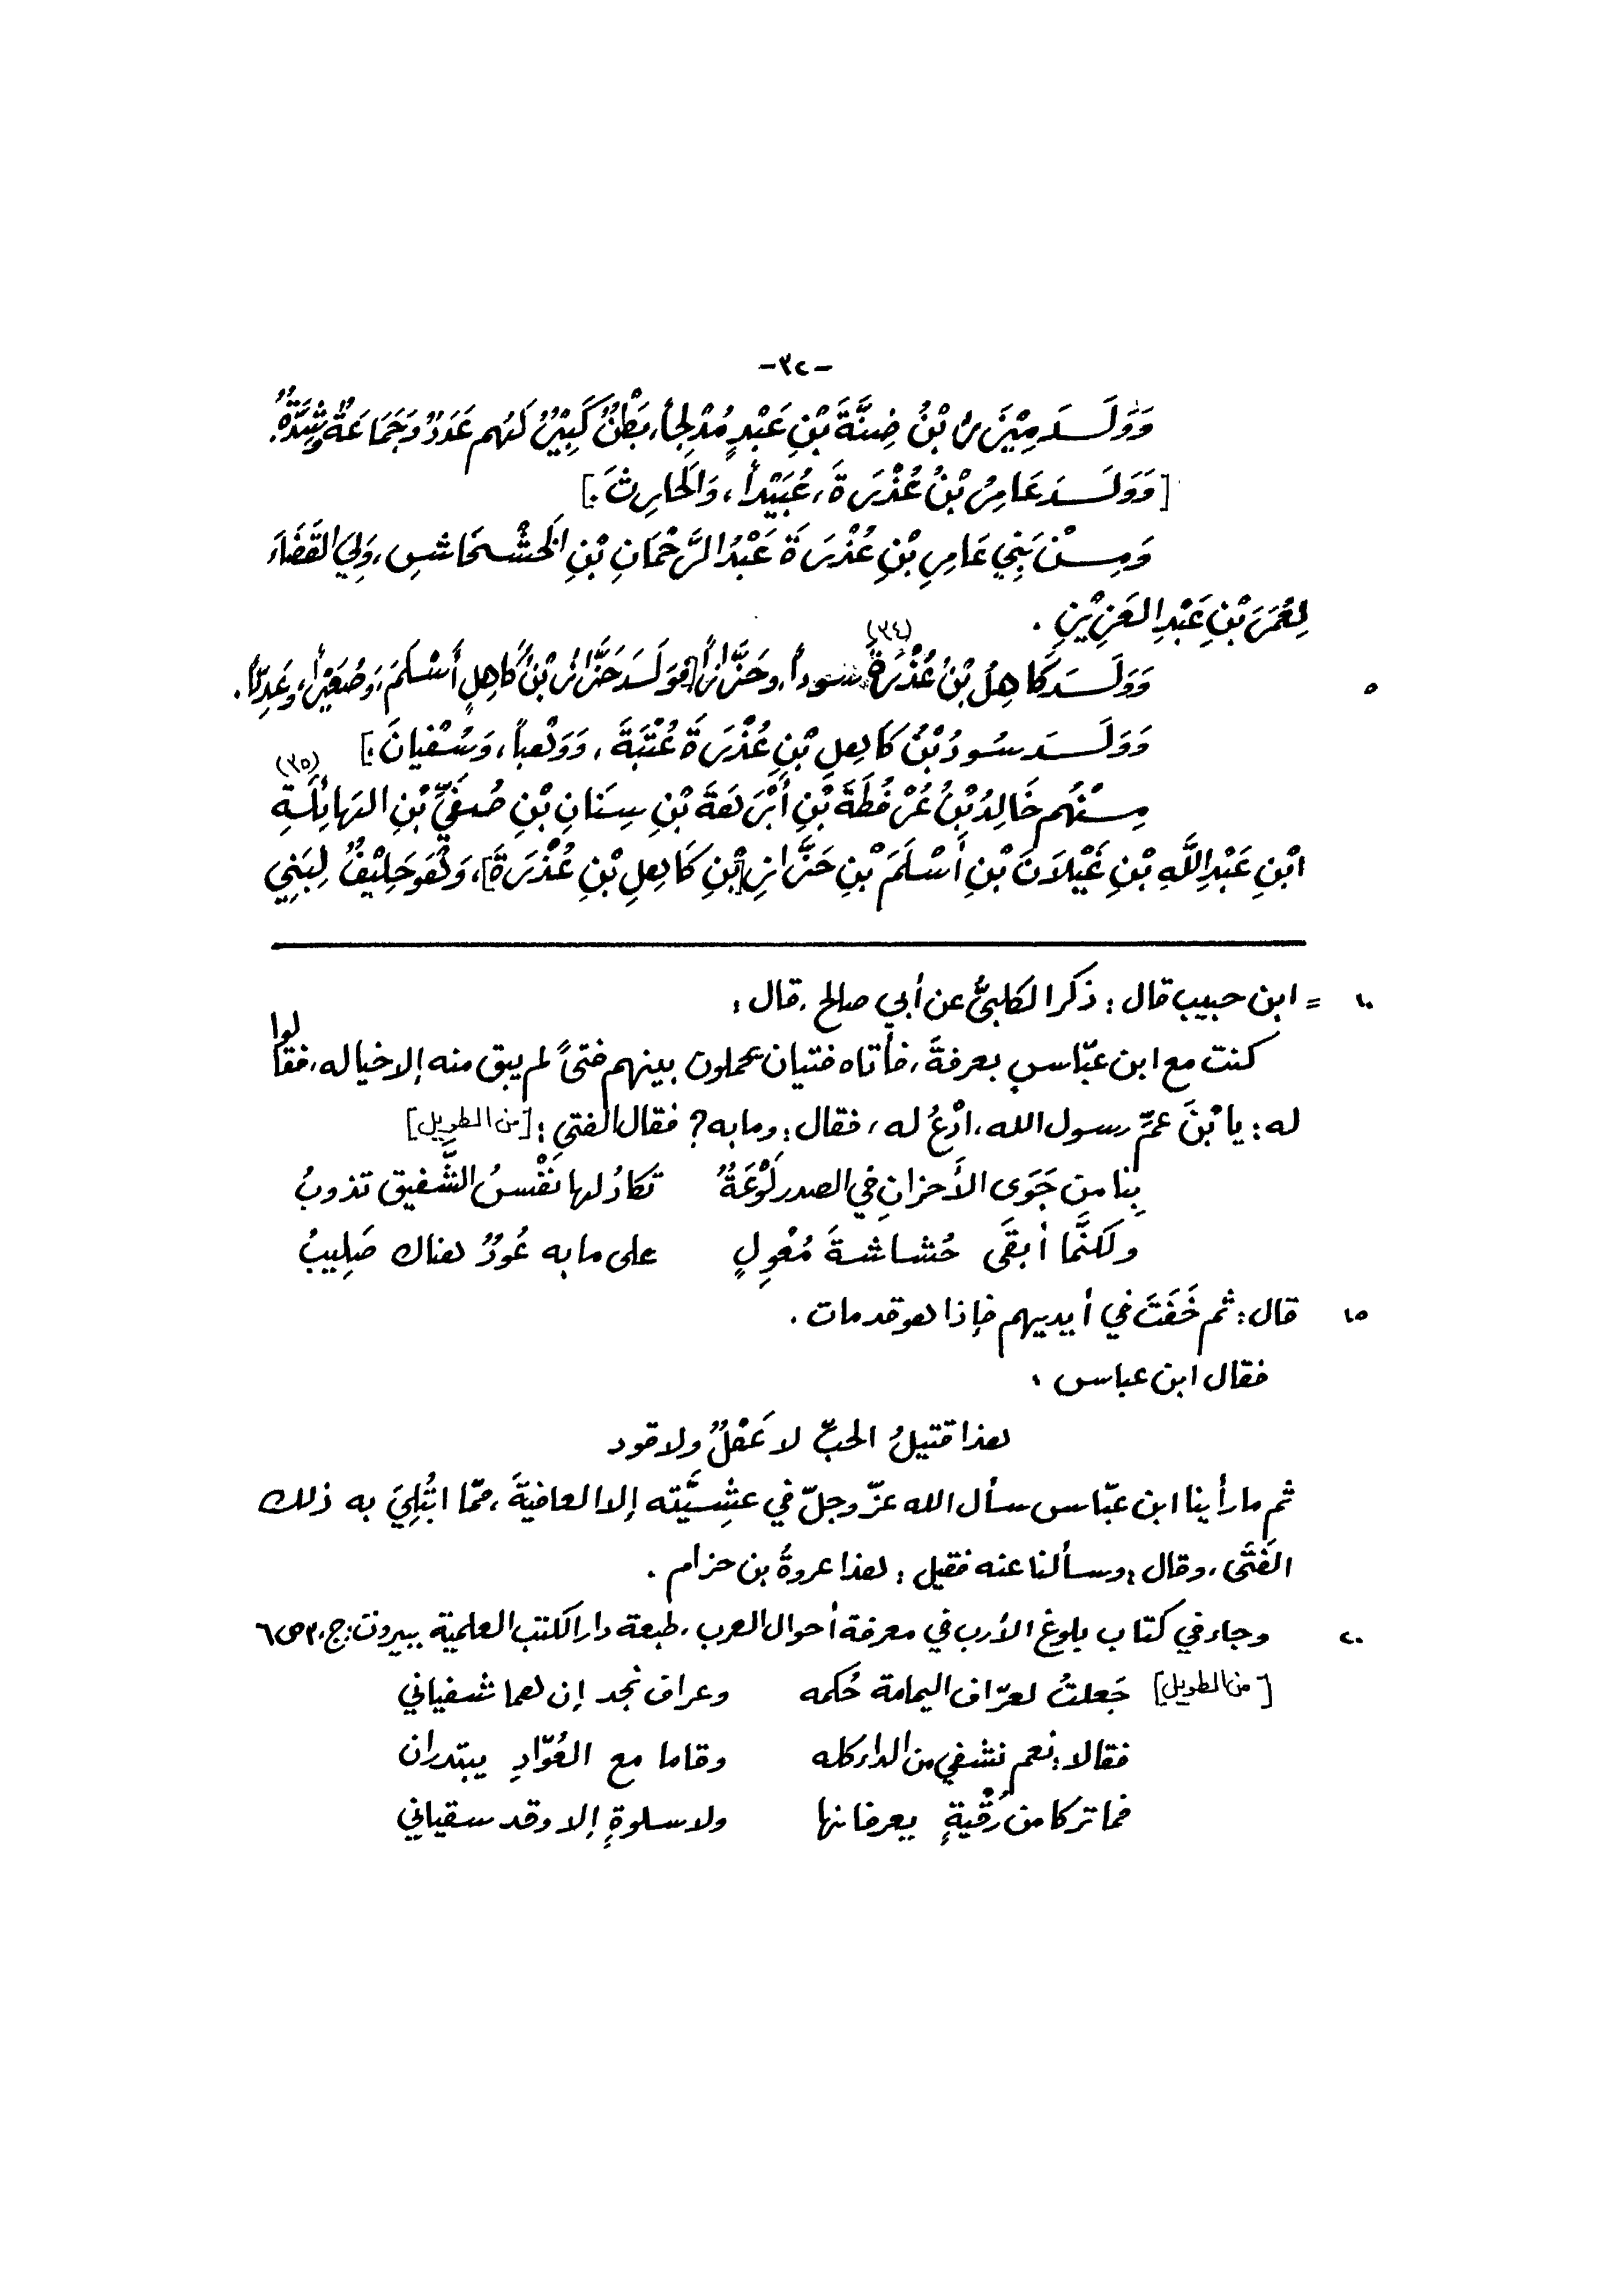 -٣٢-
وَوَلَـدَ مِيْزَنُ بْنُ ضِنَّةَ بْنِ عَبْدٍ مُدْلِجاً، بَطْنٌ كَبِيْرٌ لَهُم عَدَدٌ وَجَمَاعَةٌ وشِدَّةٌ.
[وَوَلَـدَ عَامِرُ بْنُ عُذْرَةَ، عُبَيْداً، وَالحَارِثَ.]
وَمِـنْ بَنِي عَامِرِ بْنِ عُذْرَةَ عَبْدُ الرَّحْمَانِ بْنِ الخَشْخَاشِ، وَلِيَ القَضَاءَ
لِعُمَرَ بْنِ عَبْدِ العَزِيْزِ .
٥ وَوَلَـدَ كَاهِلُ بْنُ عُذْرَةَ (٣٤) سوداً، وحَزَّازاً [فَوَلَدَ حَزَّازُ بْنُ كاهِلٍ أَسْلَمَ، وَصُعَيْراً، وعَدِيّاً.
وَوَلَـدَ سُودُ بْنُ كَاهِلِ بْنِ عُذْرَةَ عُتْبَةَ، وَوَهْباً، وَسُفْيانَ.]
مِـنْهُم خَالِدُ بْنُ عُرْفُطَةَ بْنِ أَبْرَهَةَ بْنِ سِنَانِ بْنِ صُيْفَيِّ بْنِ الهَائِلَةِ (٣٥)
ابْنِ عَبْدِ اللَّهِ بْنِ غَيْلَانَ بْنِ أَسْلَمَ بْنِ حَزَّازِ [بْنِ كَاهِلِ بْنِ عُذْرَةَ]، وَهُوَ حَلِيْفٌ لِبَنِي
١٠ = ابن حبيب قال: ذَكَر الكلبيُّ عن أبي صالح، قال:
كنت مع ابن عبّاس بعرفةَ، فأتاه فتيان يحملون بينهم فتىً لم يبق منه إلا خياله، فقالوا
له: يا بْنَ عمِّ رسول الله، ادْعُ له، فقال: وما به؟ فقال الفتى: [من الطويل]
بِنا من جَوَى الأَحزانِ في الصدر لَوْعَةٌ تكادُ لها نَفْسُ الشَّفيق تذوبُ
ولكنَّما أبقَى حُشاشةَ مُعْوِلٍ على ما به عُودٌ هناك صَلِيبُ
١٥ قال: ثم خَفَتَ في أيديهم فإذا هو قد مات .
فقال ابن عباس :
هذا قتيلُ الحبِّ لا عَقْلٌ ولا قود
ثم ما رأينا ابن عبّاس سأل الله عزّ وجلّ في عشِيَّته إلا العافيةَ، ممّا ابْتُلِيَ به ذلك
الفَتَى، وقال: وسألنا عنه فقيل: هذا عروةُ بن حزام .
٢٠ وجاء في كتاب بلوغ الأرب في معرفة أحوال العرب، طبعة دار الكتب العلمية ببيروت: ج، ٣ ص ٦
[من الطويل] جَعلتُ لعرّاف اليمامة حُكمه وعراف نجد إن هما شفياني
فقالا: نعم نشفي من الداء كله وقاما مع العُوّادِ يبتدران
فما تركا من رُقْيةٍ يعرفانها ولا سلوةٍ إلا وقد سقياني